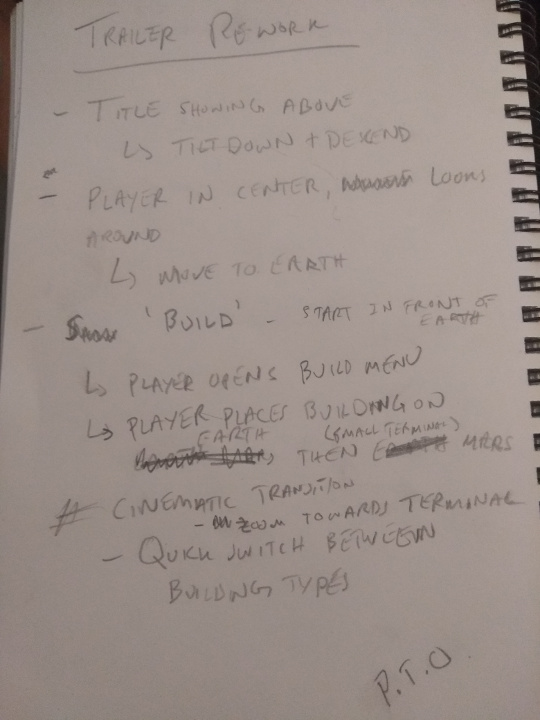 TRAILER REWORK
- TITLE SHOWING ABOVE
↳ TILT DOWN + DESCEND
- PLAYER IN CENTER, LOOKS
AROUND
↳ MOVE TO EARTH
- 'BUILD' - START IN FRONT OF
EARTH
↳ PLAYER OPENS BUILD MENU
↳ PLAYER PLACES BUILDING ON
EARTH (SMALL TERMINAL)
, THEN MARS
# CINEMATIC TRANSITION
- ZOOM TOWARDS TERMINAL
- QUICK SWITCH BETWEEN
BUILDING TYPES
P.T.O